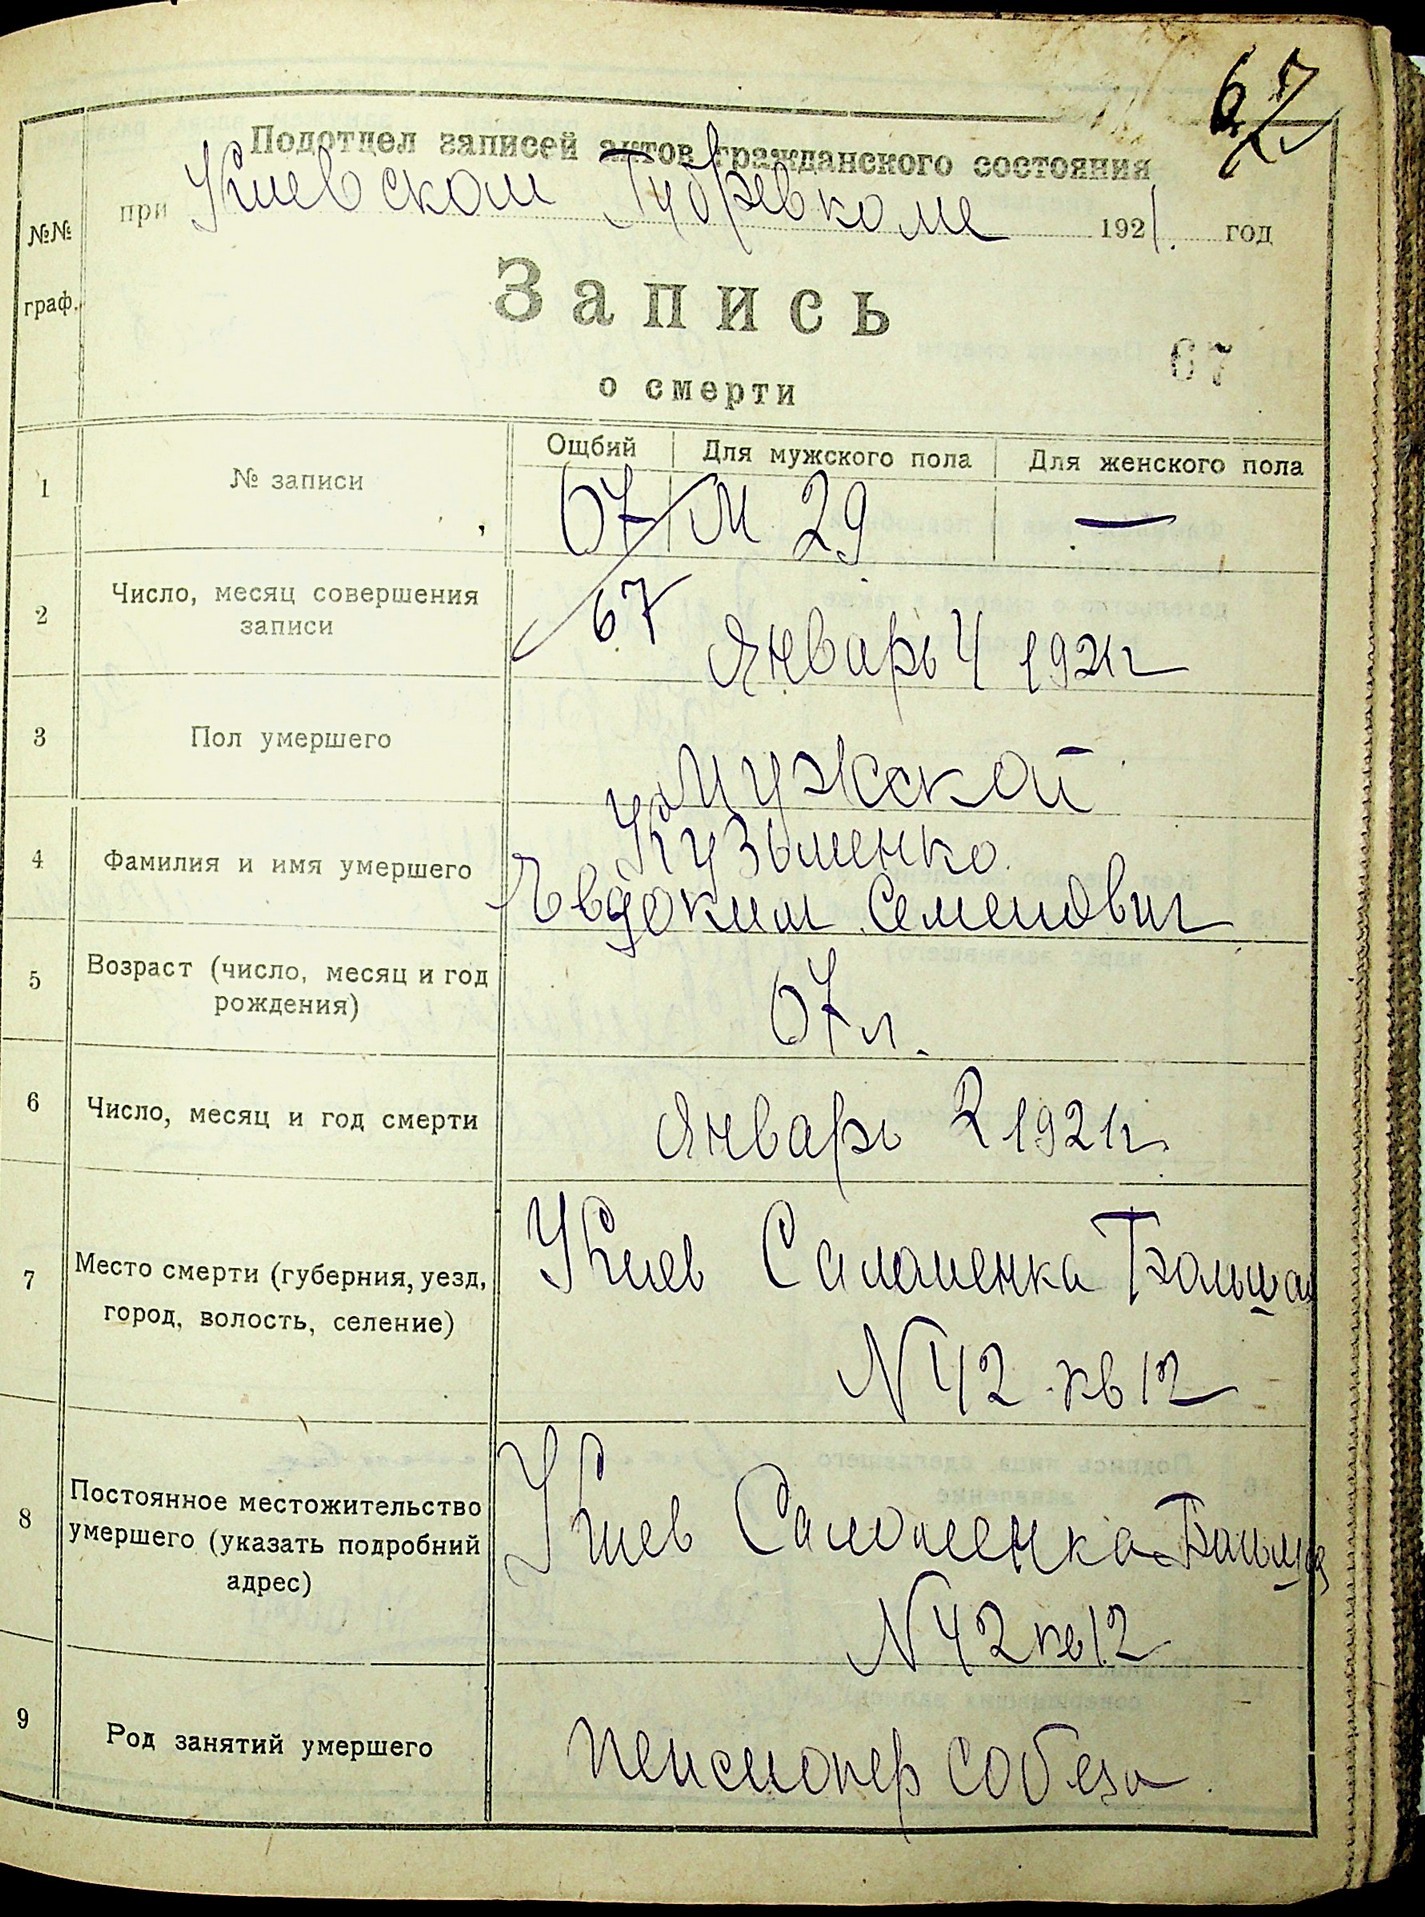 67
Подотдел записей актов гражданского состояния
при Киевском Губревкоме 1921. год
№№ граф.
Запись
о смерти
67
Ощбий Для мужского пола Для женского пола
1 № записи 67 М 29 —
67
2 Число, месяц совершения
записи Январь 4 1921г
3 Пол умершего Мужской
Кузьменко
4 Фамилия и имя умершего Евдоким Семенович
5 Возраст (число, месяц и год
рождения) 67 л.
6 Число, месяц и год смерти Январь 2 1921г.
7 Место смерти (губерния, уезд, Киев Саломенка Большая
город, волость, селение) N 42 кв 12
8 Постоянное местожительство Киев Саломенка Большая
умершего (указать подробний
адрес) N 42 кв 12
9 Род занятий умершего пенсионер собеза